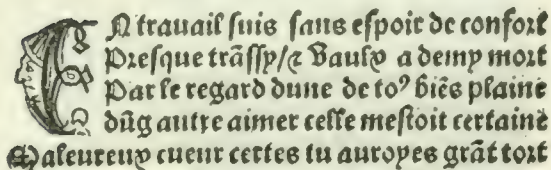 EN trauail suis sans espoir de confort
Presque trãssy/⁊ vaulx a demy mort
Par le regard dune de toꝰ biẽs plaine
Q dũg autre aimer celle mestoit certaine
Maleureux cueur certes tu auroyes grãt tort